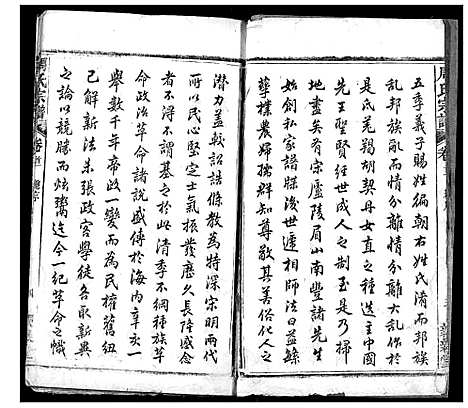 五季義子賜姓徧朝右姓氏淆而邦族
亂邦族亂而情分離情分離大亂作於
是氏羌鶡胡契丹女直之種迭主中國
先王歷世經世成人之制至是乃掃
地盡矣有宋廬陵眉山南豐諸先生
作家譜牒後世遞相師法曰益鯀
華樸農婦孺群得其美俗化人之
潛力蓋較詔誥條教為特深宋明兩代
所以民心堅定士氣振發歷久長降盛衰
者不得不謂基之於此清季不綱種族革
命政治革命諸說盛傳於海內辛亥一
舉數千年帝政一變而為民權舊紐
已解新法未張政客學徒各取新異
之論以競勝而炫鬻迄今一紀革命之幟
周氏宗譜
卷首
周氏宗譜
卷首